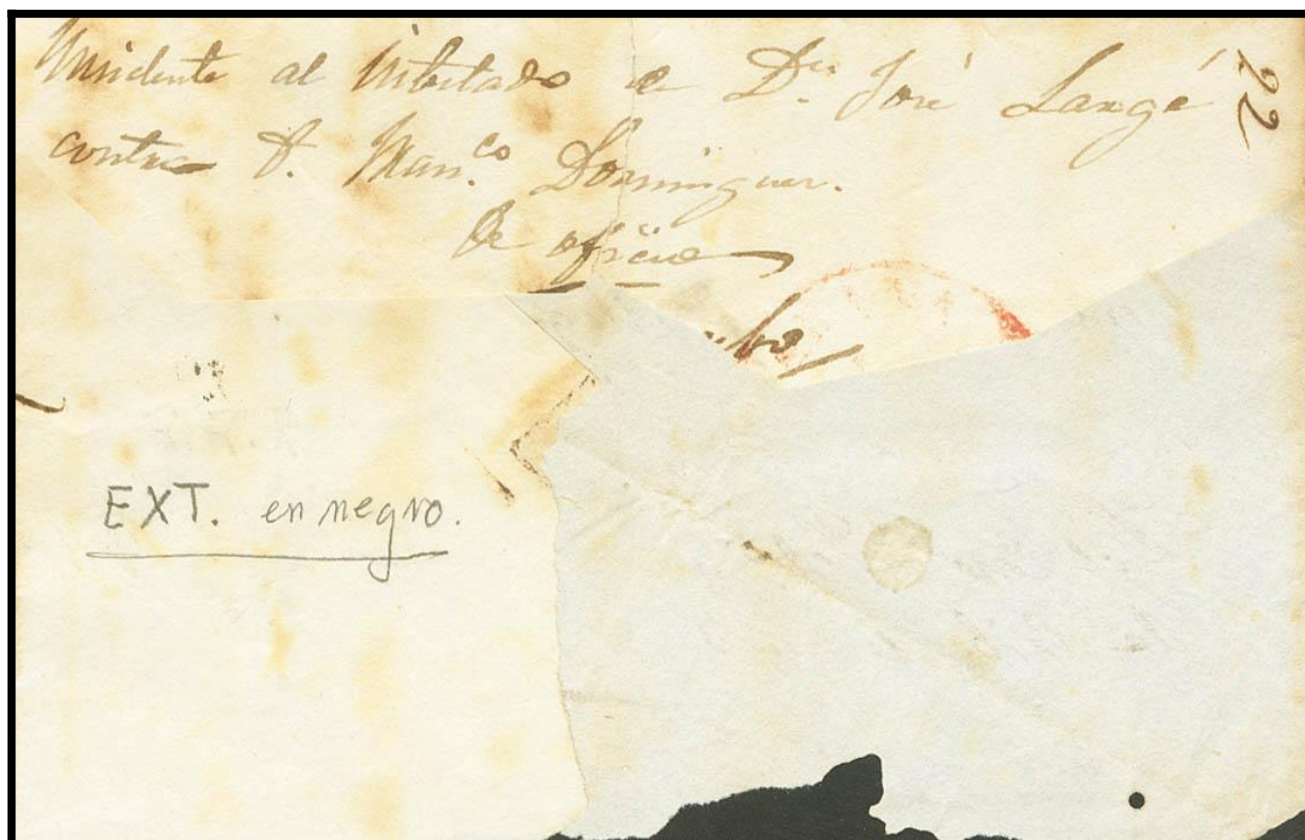 Insidente al intestado de Dn José Langé
contra D. Man.co Dominguez.
De oficio
22
EXT. en negro.